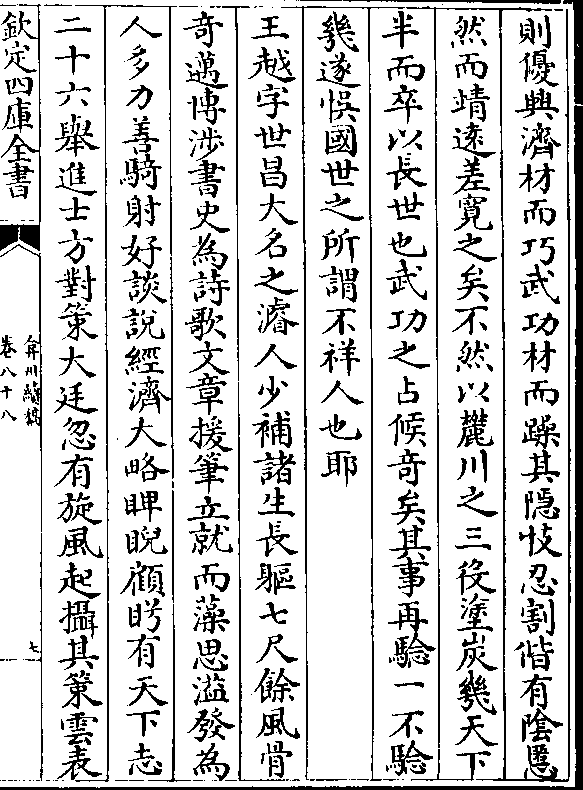 則優與濟材而巧武功材而躁其隠忮忍割偕有陰慝
然而靖遠差寛之矣不然以麓川之三役塗炭幾天下
半而卒以長世也武功之占候奇矣其事再驗一不驗
幾遂悞國世之所謂不祥人也耶
王越字世昌大名之濬人少補諸生長軀七尺餘風骨
奇邁博涉書史為詩歌文章援筆立就而藻思溢發為
人多力善騎射好談說經濟大略睥睨顧盻有天下志
二十六舉進士方對策大廷忽有旋風起攝其策雲表
欽定四庫全書
弇州續稿
卷八十八
七